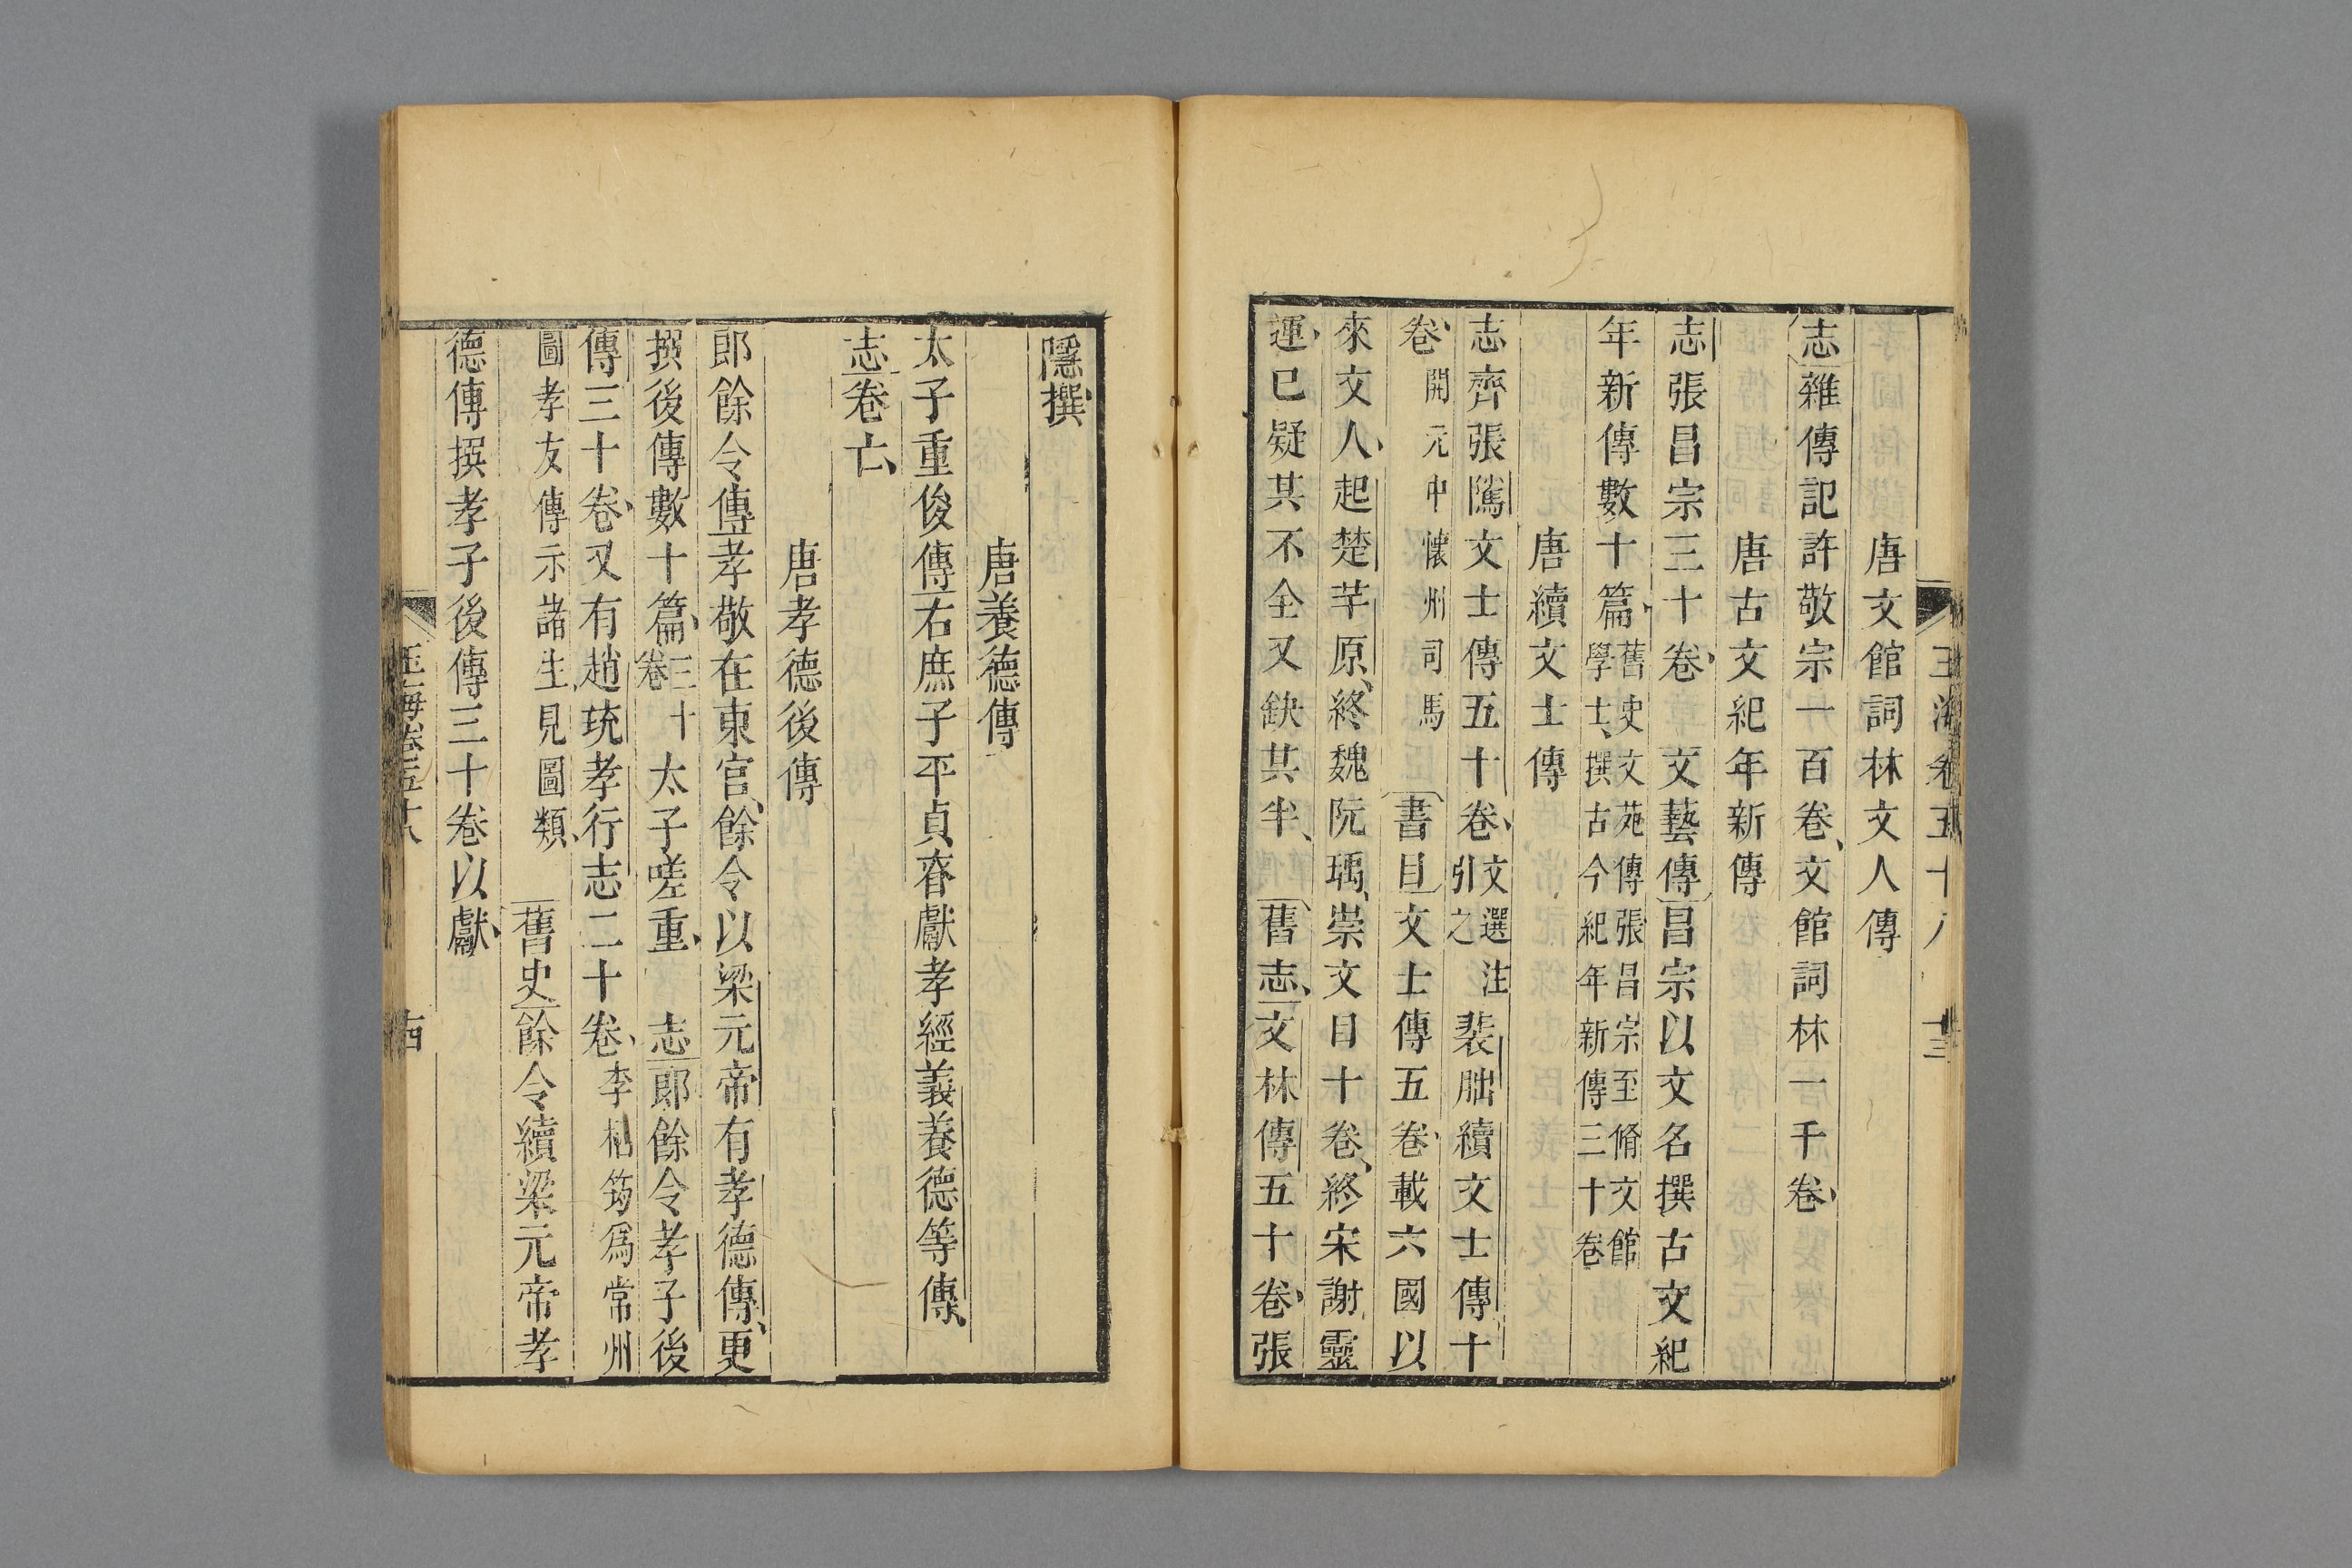 玉海卷五十八 十三
唐文館詞林文人傳
志雜傳記許敬宗一百卷文館詞林一千卷
唐古文紀年新傳
志張昌宗三十卷 文藝傳昌宗以文名撰古文紀
年新傳數十篇舊史文苑傳張昌宗至脩文館
學士撰古今紀年新傳三十卷
唐續文士傳
志齊張隲文士傳五十卷文選注
引之裴朏續文士傳十
卷開元中懷州司馬 書目文士傳五卷載六國以
來文人起楚芊原終魏阮瑀崇文目十卷終宋謝靈
運已疑其不全又缺其半 舊志文林傳五十卷張
隱撰
唐養德傳
太子重俊傳右庶子平貞眘獻孝經義養德等傳
志卷亡
唐孝德後傳
郎餘令傳孝敬在東宮餘令以梁元帝有孝德傳更
撰後傳數十篇三十
卷太子嗟重 志郎餘令孝子後
傳三十卷又有趙珫孝行志二十卷李栖筠爲常州
圖孝友傳示諸生見圖類 舊史餘令續梁元帝孝
德傳撰孝子後傳三十卷以獻
玉海卷五十八 十四